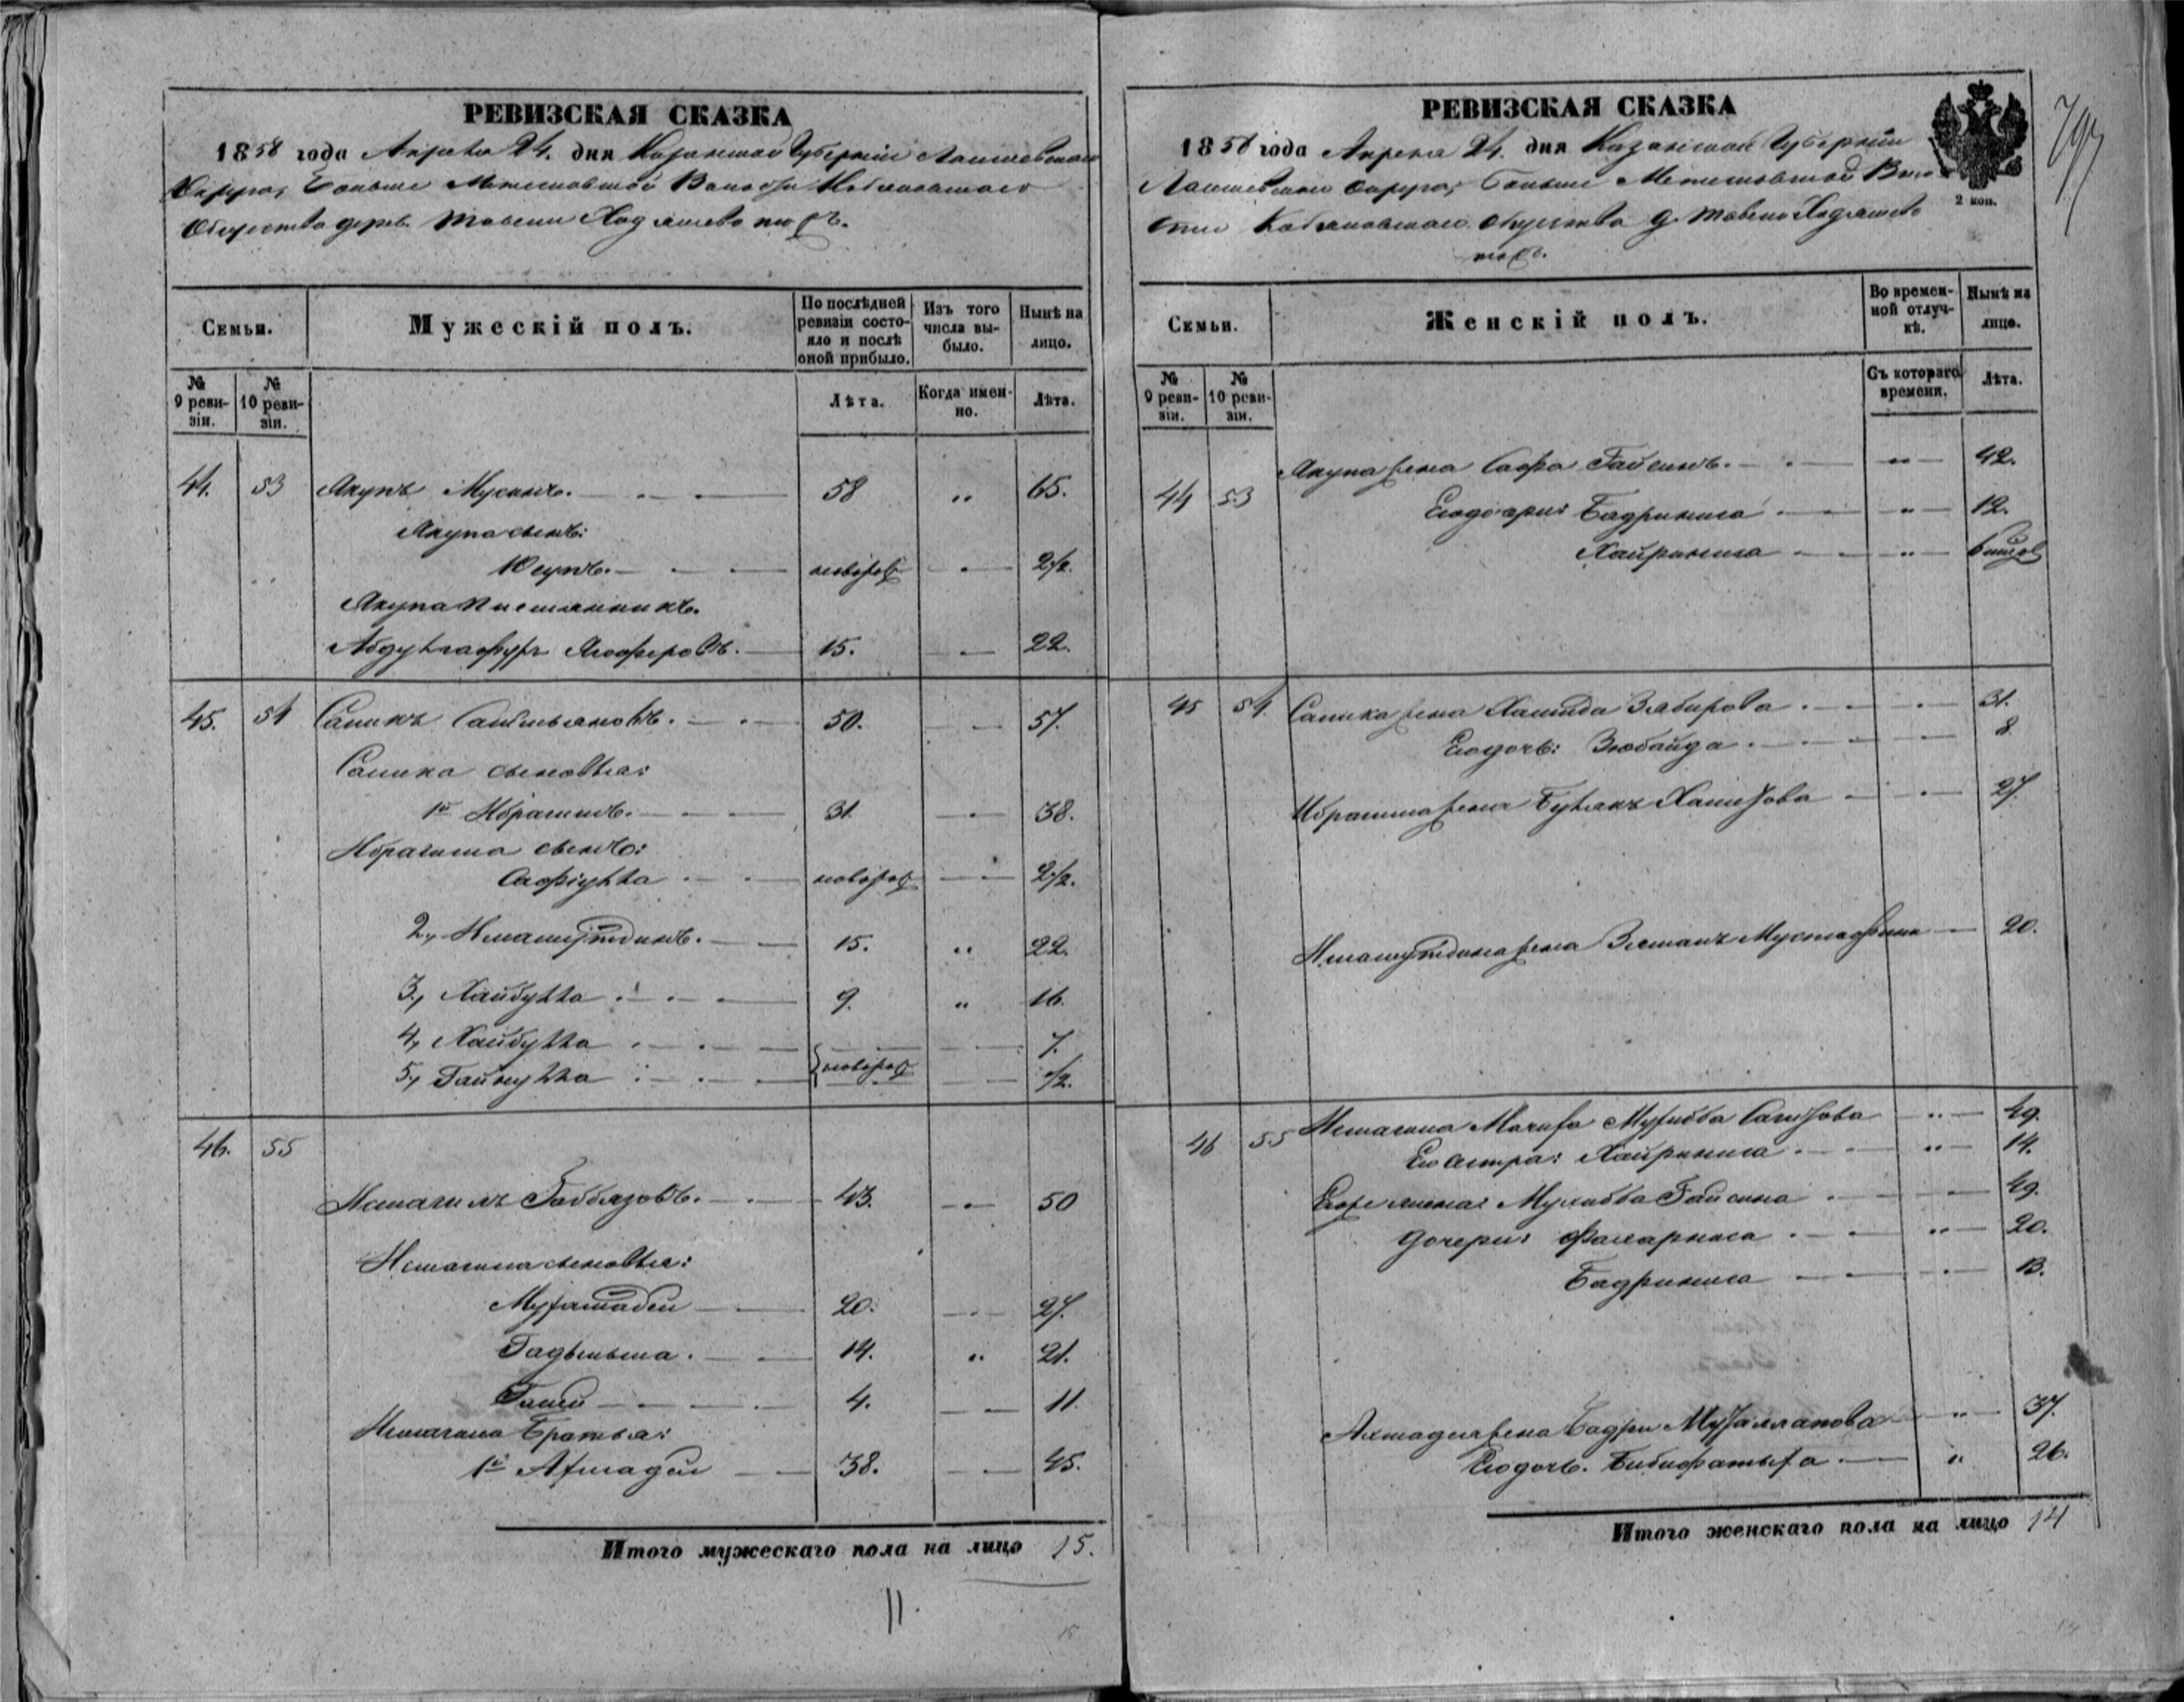 РЕВИЗСКАЯ СКАЗКА
1858 года Апреля 24. дня Казанской Губернии Лаишевскаго
Округа, Больше Метесковской Волости Кобяковскаго
Общества дерев. Тявели Ходяшево тож.
Семьи.
Мужескій полъ.
По послѣдней ревизіи состояло и послѣ оной прибыло.
Изъ того числа выбыло.
Нынѣ на лицо.
№ 9 ревизіи.
№ 10 ревизіи.
Лѣта.
Когда именно.
Лѣта.
44. 53 Якупъ Мусинъ. 58 „ 65.
Якупа сынъ:
Юсупъ. новорож 2/2.
Якупа племянникъ.
Абдулгафуръ Ягоферовъ. 15. 22.
45. 54 Саликъ Сайтляновъ. 50. 57.
Салика сыновья:
1й Ибрагимъ. 31. 38.
Ибрагима сынъ:
Сафіулла новорож 2/2.
2, Имамутдинъ. 15. „ 22.
3, Хайбулла 9. „ 16.
4, Хайбулла 7.
5, Гайнулла новорож 1/2.
46. 55
Исмагилъ Габбязовъ. 43. 50
Исмагила сыновья:
20. 27.
14. „ 21.
4. 11.
Исмагила Братья:
1й Ахмадей 38. 45.
Итого мужескаго пола на лицо 15.
11.
15
РЕВИЗСКАЯ СКАЗКА
1858 года Апреля 24. дня Казанской Губернии
Лаишевскаго округа, Больше Метесковской Воло
сти Кобяковскаго общества д. Тявели Ходяшево
тож.
2 коп.
Семьи.
Женскій полъ.
Во временной отлучкѣ.
Нынѣ на лицо.
№ 9 ревизіи.
№ 10 ревизіи.
Съ котораго времени.
Лѣта.
44 53 Якупа жена Сафа 42.
Его дочери: Бадриниса „ 12.
Хайриниса „
45 54. Салика жена Хамида Зябирова 31.
Его дочь: Зюбайда 8.
Ибрагима жена 27.
Имамутдина жена Мустафина 20.
46 55 Исмагила 49.
Его сестра: Хайриниса „ 14.
Его жена: Мухибба Гайсина 49.
дочери: „ 20.
Бадриниса 13.
Ахмадея жена Бадри „ 37.
Его дочь. Бибифатыха „ 26.
Итого женскаго пола на лицо 14